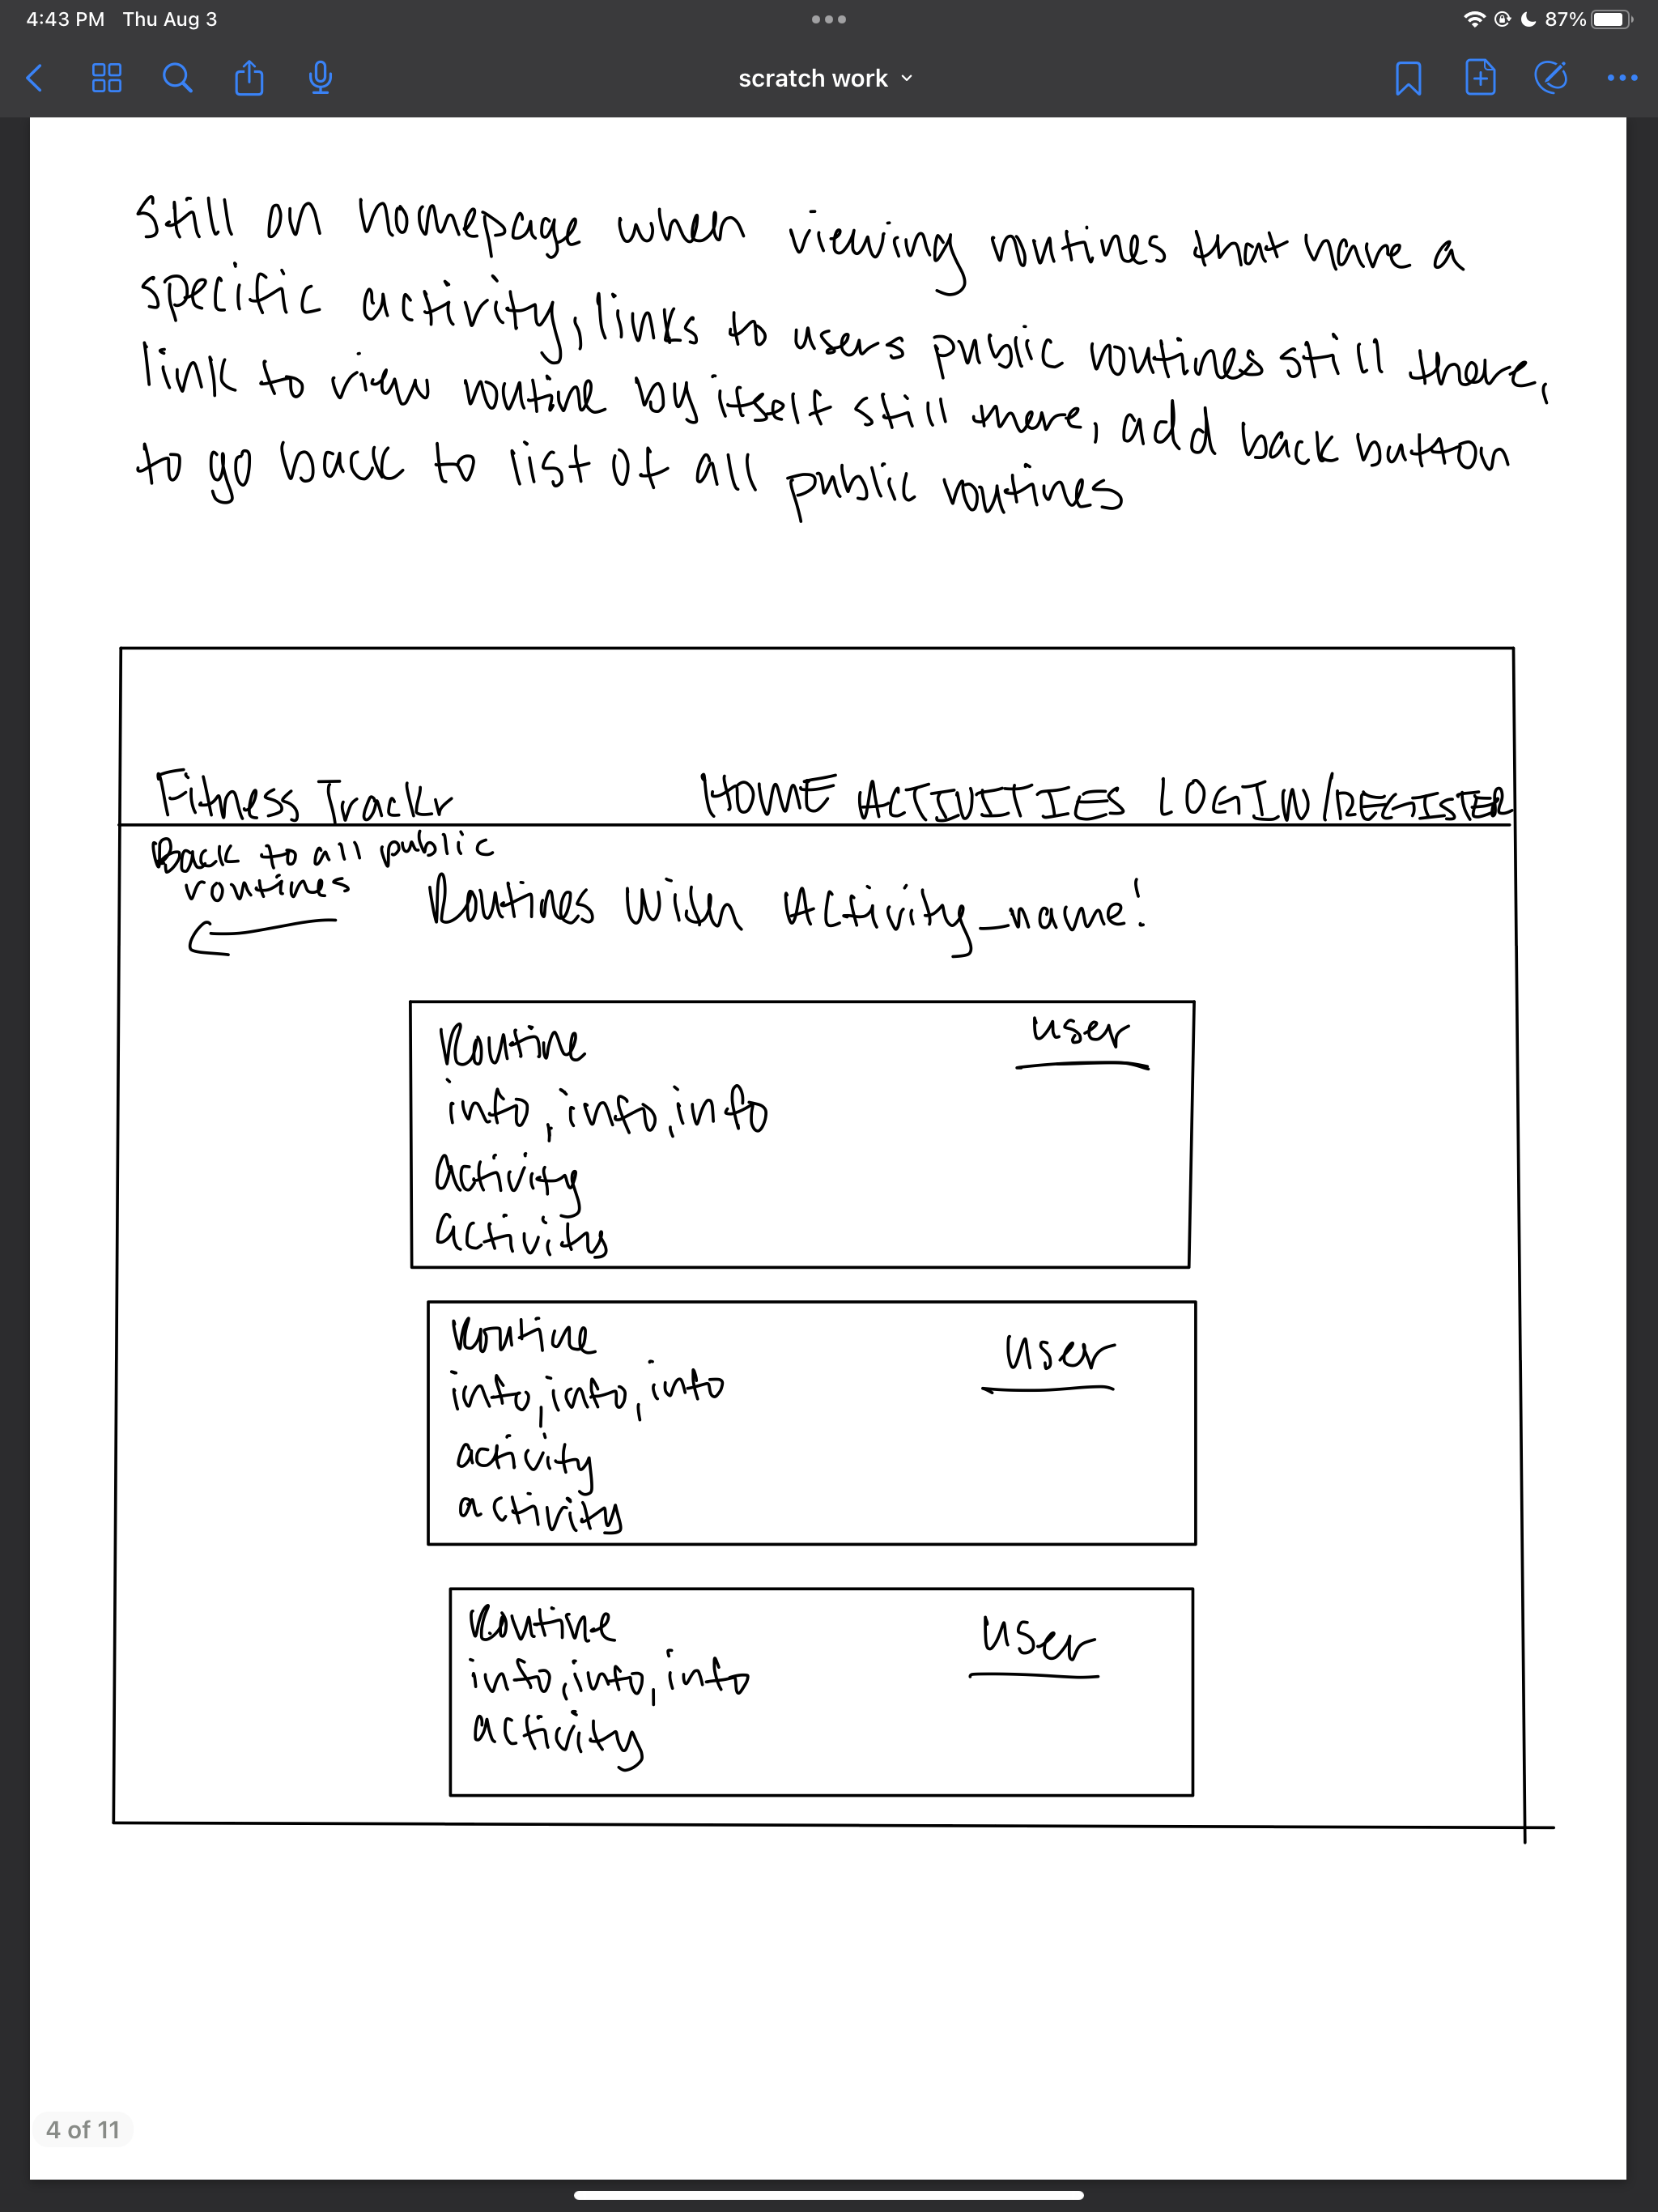 4:43 PM Thu Aug 3
87%
scratch work
Still on homepage when viewing routines that have a
specific activity, links to users public routines still there,
link to view routine by itself still there, add back button
to go back to list of all public routines
Fitness Trackr HOME ACTIVITIES LOGIN/REGISTER
Back to all public
routines
Routines With Activity_name:
Routine user
info, info, info
Activity
activity
Routine user
info, info, info
activity
activity
Routine user
info, info, info
activity
4 of 11